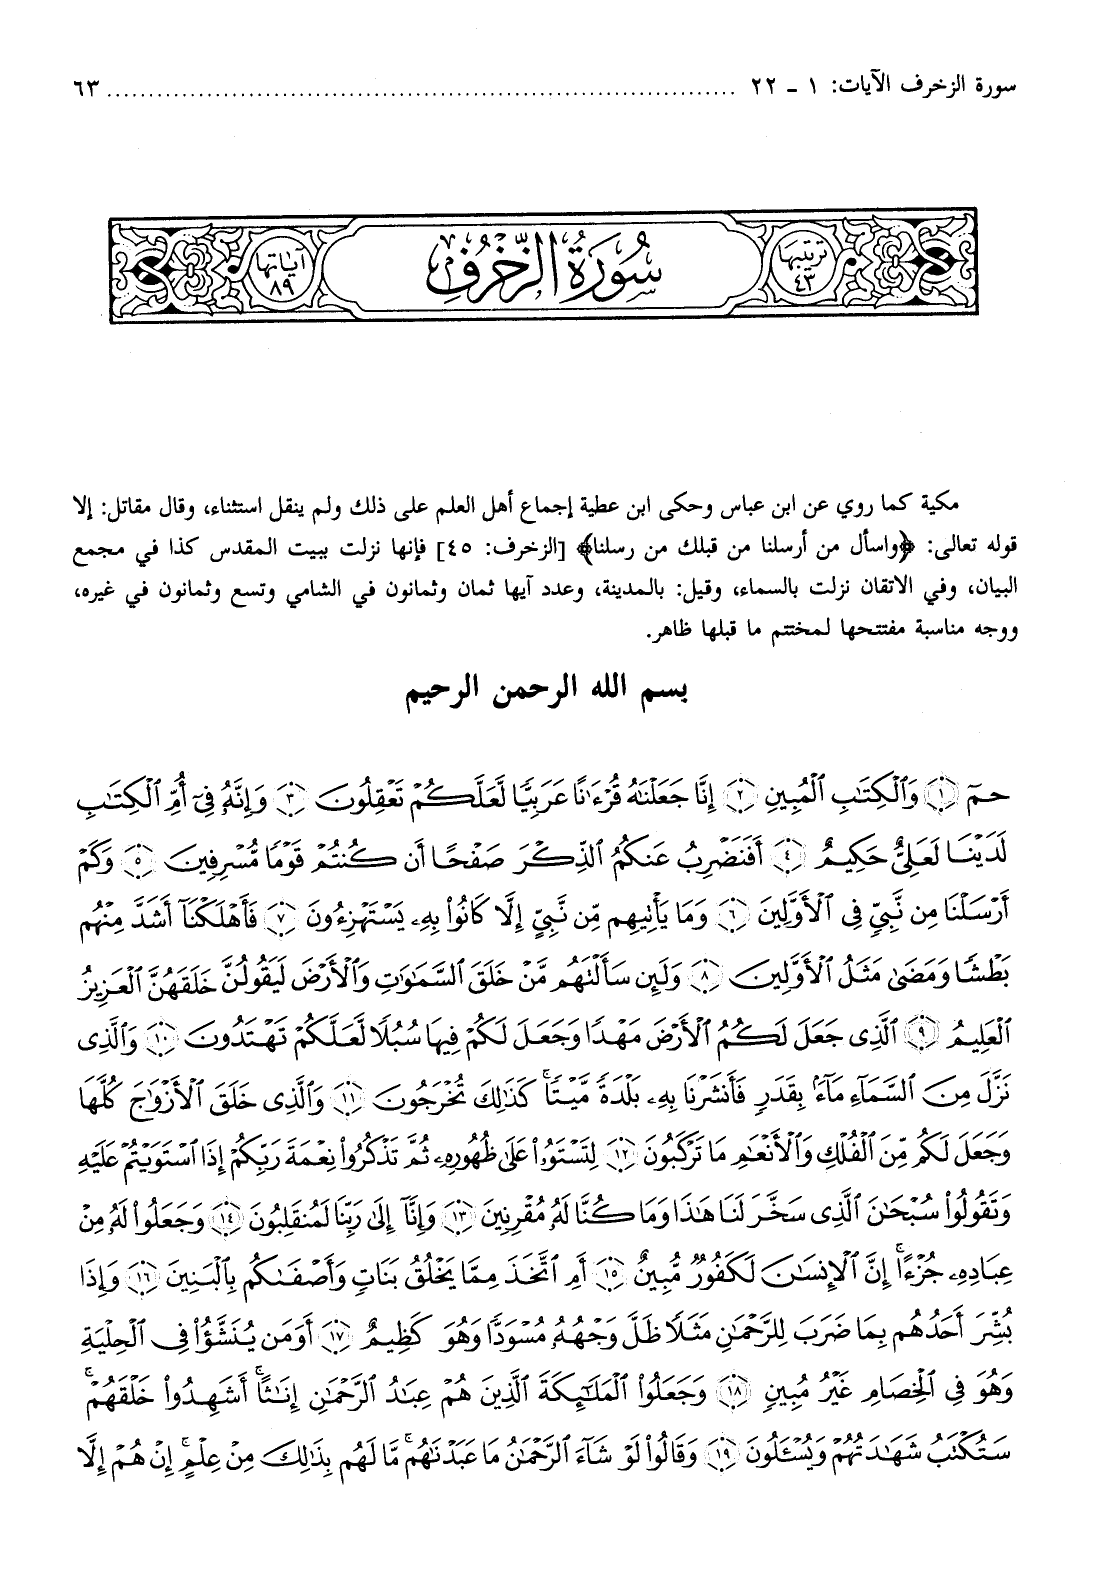 سورة الزخرف الآيات: ١ ـ ٢٢ ........................................................................... ٦٣
ترتيبها ٤٣
سُورَةُ الزُّخْرُفِ
آيَاتها ٨٩
مكية كما روي عن ابن عباس وحكى ابن عطية إجماع أهل العلم على ذلك ولم ينقل استثناء، وقال مقاتل: إلا
قوله تعالى: ﴿واسأل من أرسلنا من قبلك من رسلنا﴾ [الزخرف: ٤٥] فإنها نزلت ببيت المقدس كذا في مجمع
البيان، وفي الاتقان نزلت بالسماء، وقيل: بالمدينة، وعدد آيها ثمان وثمانون في الشامي وتسع وثمانون في غيره،
ووجه مناسبة مفتتحها لمختتم ما قبلها ظاهر.
بسم الله الرحمن الرحيم
حمٓ ١ وَٱلْكِتَٰبِ ٱلْمُبِينِ ٢ إِنَّا جَعَلْنَٰهُ قُرْءَٰنًا عَرَبِيًّا لَّعَلَّكُمْ تَعْقِلُونَ ٣ وَإِنَّهُۥ فِىٓ أُمِّ ٱلْكِتَٰبِ
لَدَيْنَا لَعَلِىٌّ حَكِيمٌ ٤ أَفَنَضْرِبُ عَنكُمُ ٱلذِّكْرَ صَفْحًا أَن كُنتُمْ قَوْمًا مُّسْرِفِينَ ٥ وَكَمْ
أَرْسَلْنَا مِن نَّبِىٍّ فِى ٱلْأَوَّلِينَ ٦ وَمَا يَأْتِيهِم مِّن نَّبِىٍّ إِلَّا كَانُوا۟ بِهِۦ يَسْتَهْزِءُونَ ٧ فَأَهْلَكْنَآ أَشَدَّ مِنْهُم
بَطْشًا وَمَضَىٰ مَثَلُ ٱلْأَوَّلِينَ ٨ وَلَئِن سَأَلْتَهُم مَّنْ خَلَقَ ٱلسَّمَٰوَٰتِ وَٱلْأَرْضَ لَيَقُولُنَّ خَلَقَهُنَّ ٱلْعَزِيزُ
ٱلْعَلِيمُ ٩ ٱلَّذِى جَعَلَ لَكُمُ ٱلْأَرْضَ مَهْدًا وَجَعَلَ لَكُمْ فِيهَا سُبُلًا لَّعَلَّكُمْ تَهْتَدُونَ ١٠ وَٱلَّذِى
نَزَّلَ مِنَ ٱلسَّمَآءِ مَآءًۢ بِقَدَرٍ فَأَنشَرْنَا بِهِۦ بَلْدَةً مَّيْتًا ۚ كَذَٰلِكَ تُخْرَجُونَ ١١ وَٱلَّذِى خَلَقَ ٱلْأَزْوَٰجَ كُلَّهَا
وَجَعَلَ لَكُم مِّنَ ٱلْفُلْكِ وَٱلْأَنْعَٰمِ مَا تَرْكَبُونَ ١٢ لِتَسْتَوُۥا۟ عَلَىٰ ظُهُورِهِۦ ثُمَّ تَذْكُرُوا۟ نِعْمَةَ رَبِّكُمْ إِذَا ٱسْتَوَيْتُمْ عَلَيْهِ
وَتَقُولُوا۟ سُبْحَٰنَ ٱلَّذِى سَخَّرَ لَنَا هَٰذَا وَمَا كُنَّا لَهُۥ مُقْرِنِينَ ١٣ وَإِنَّآ إِلَىٰ رَبِّنَا لَمُنقَلِبُونَ ١٤ وَجَعَلُوا۟ لَهُۥ مِنْ
عِبَادِهِۦ جُزْءًا ۚ إِنَّ ٱلْإِنسَٰنَ لَكَفُورٌ مُّبِينٌ ١٥ أَمِ ٱتَّخَذَ مِمَّا يَخْلُقُ بَنَاتٍ وَأَصْفَىٰكُم بِٱلْبَنِينَ ١٦ وَإِذَا
بُشِّرَ أَحَدُهُم بِمَا ضَرَبَ لِلرَّحْمَٰنِ مَثَلًا ظَلَّ وَجْهُهُۥ مُسْوَدًّا وَهُوَ كَظِيمٌ ١٧ أَوَمَن يُنَشَّؤُا۟ فِى ٱلْحِلْيَةِ
وَهُوَ فِى ٱلْخِصَامِ غَيْرُ مُبِينٍ ١٨ وَجَعَلُوا۟ ٱلْمَلَٰٓئِكَةَ ٱلَّذِينَ هُمْ عِبَٰدُ ٱلرَّحْمَٰنِ إِنَٰثًا ۚ أَشَهِدُوا۟ خَلْقَهُمْ ۚ
سَتُكْتَبُ شَهَٰدَتُهُمْ وَيُسْـَٔلُونَ ١٩ وَقَالُوا۟ لَوْ شَآءَ ٱلرَّحْمَٰنُ مَا عَبَدْنَٰهُم ۗ مَّا لَهُم بِذَٰلِكَ مِنْ عِلْمٍ ۖ إِنْ هُمْ إِلَّا